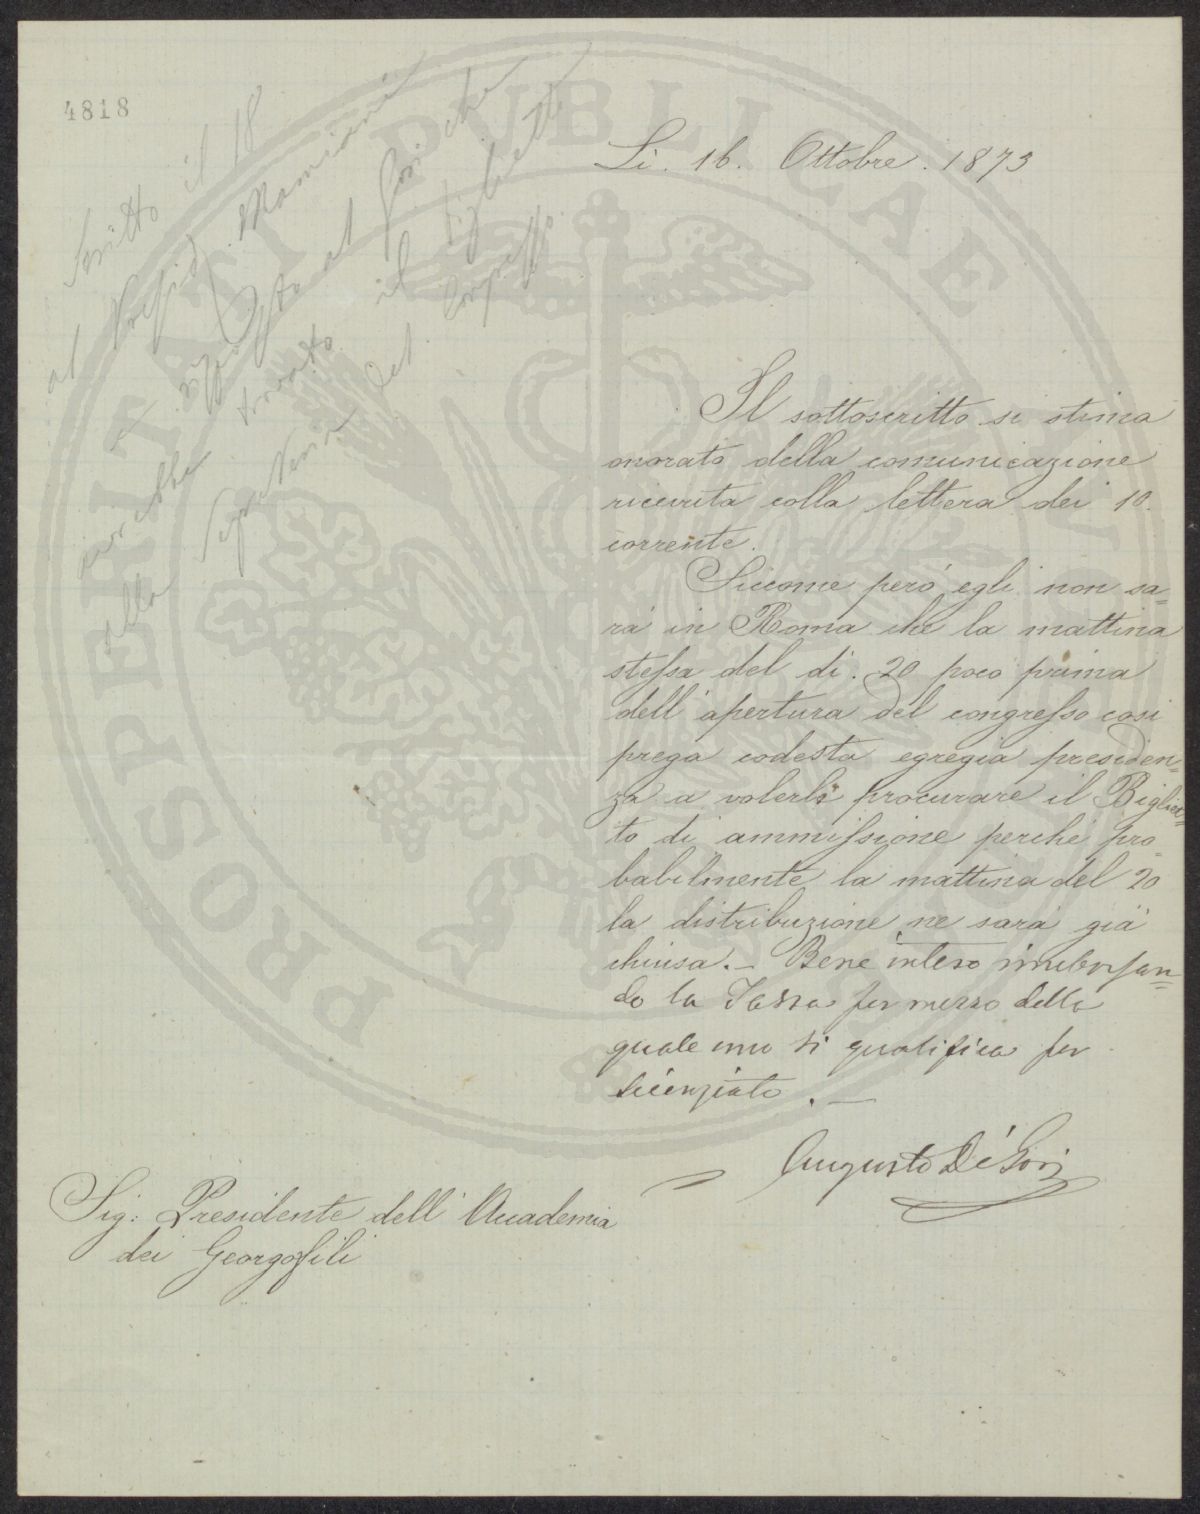 4818
Scritto il 18
al Presid. Mamiani
e risposto al Gori che
avrebbe trovato il biglietto
alla Segreteria del Congresso
Li. 16. Ottobre. 1873
Il sottoscritto si stima
onorato della comunicazione
ricevuta colla lettera dei 10.
corrente.
Siccome però egli non sa=
rà in Roma che la mattina
stessa del dì. 20 poco prima
dell' apertura del congresso così
prega codesta egregia presiden=
za a volerli procurare il Bigliet=
to di ammissione perchè pro=
babilmente la mattina del 20
la distribuzione ne sarà già
chiusa. — Bene inteso rimborsan=
do la Tassa per mezzo della
quale uno si qualifica per
licenziato. —
Augusto De' Gori
Sig: Presidente dell' Accademia
dei Georgofili
PROSPERITATI PUBLICAE